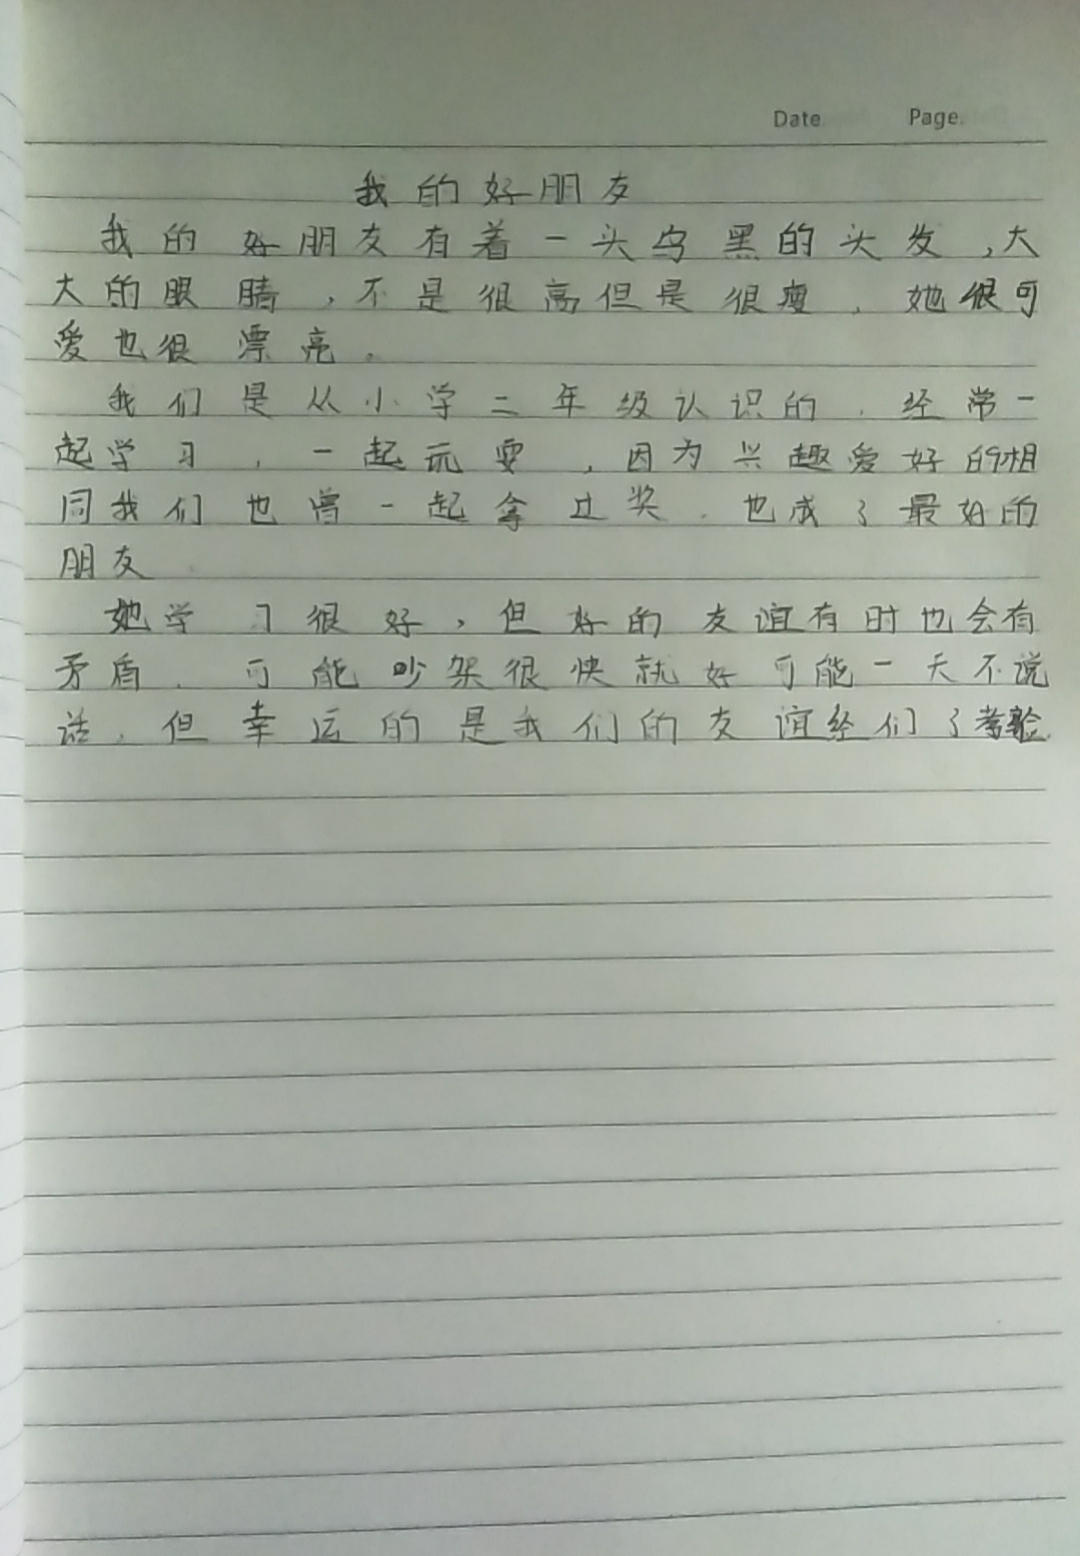 Date Page.
我的好朋友
我的好朋友有着一头乌黑的头发,大
大的眼睛,不是很高但是很瘦,她很可
爱也很漂亮。
我们是从小学二年级认识的.经常一
起学习,一起玩耍,因为兴趣爱好的相
同我们也曾一起拿过奖.也成了最好的
朋友
她学习很好,但好的友谊有时也会有
矛盾.可能吵架很快就好可能一天不说
话.但幸运的是我们的友谊经们了考验.